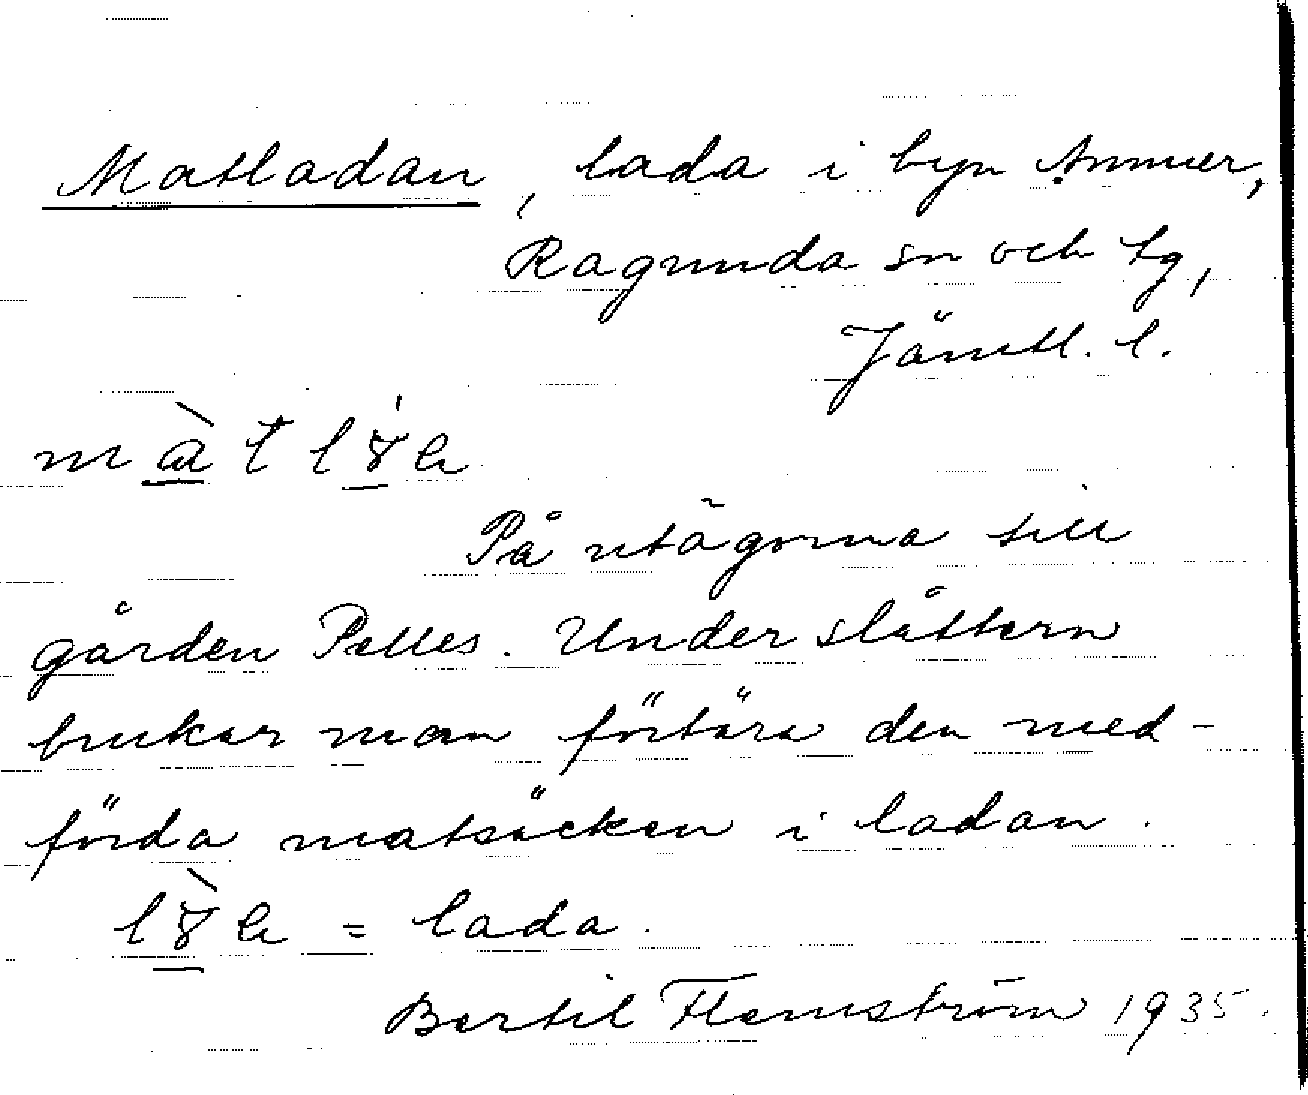 Matladan, lada i byn Ammer,
Ragunda sn och tg,
Jämtl. l.
På utägorna till
gården Pelles. Under slåttern
brukar man förtära den med-
förda matsäcken i ladan.
= lada.
Bertil Flemström 1935.